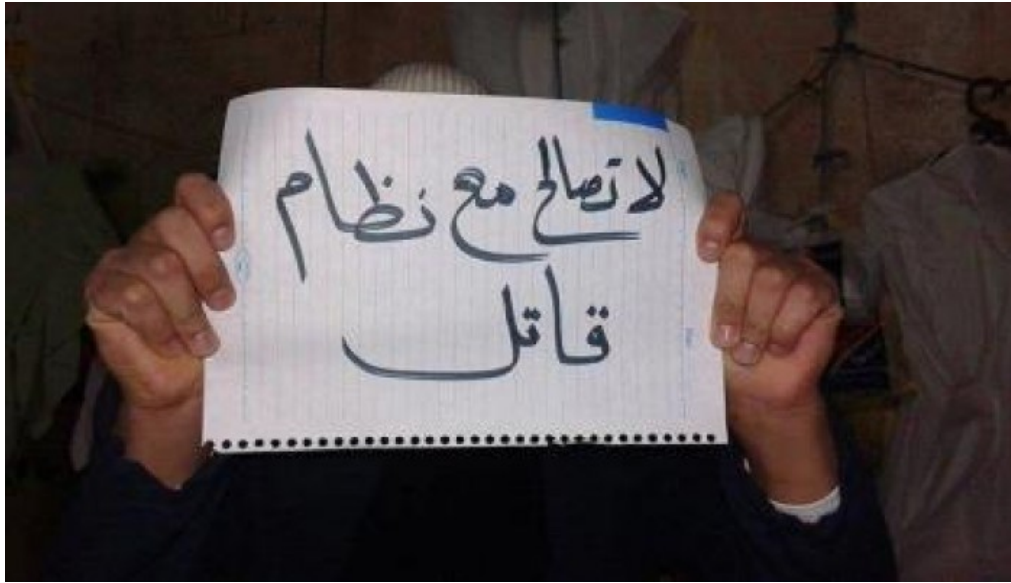 لا تصالح مع نظام
قاتل